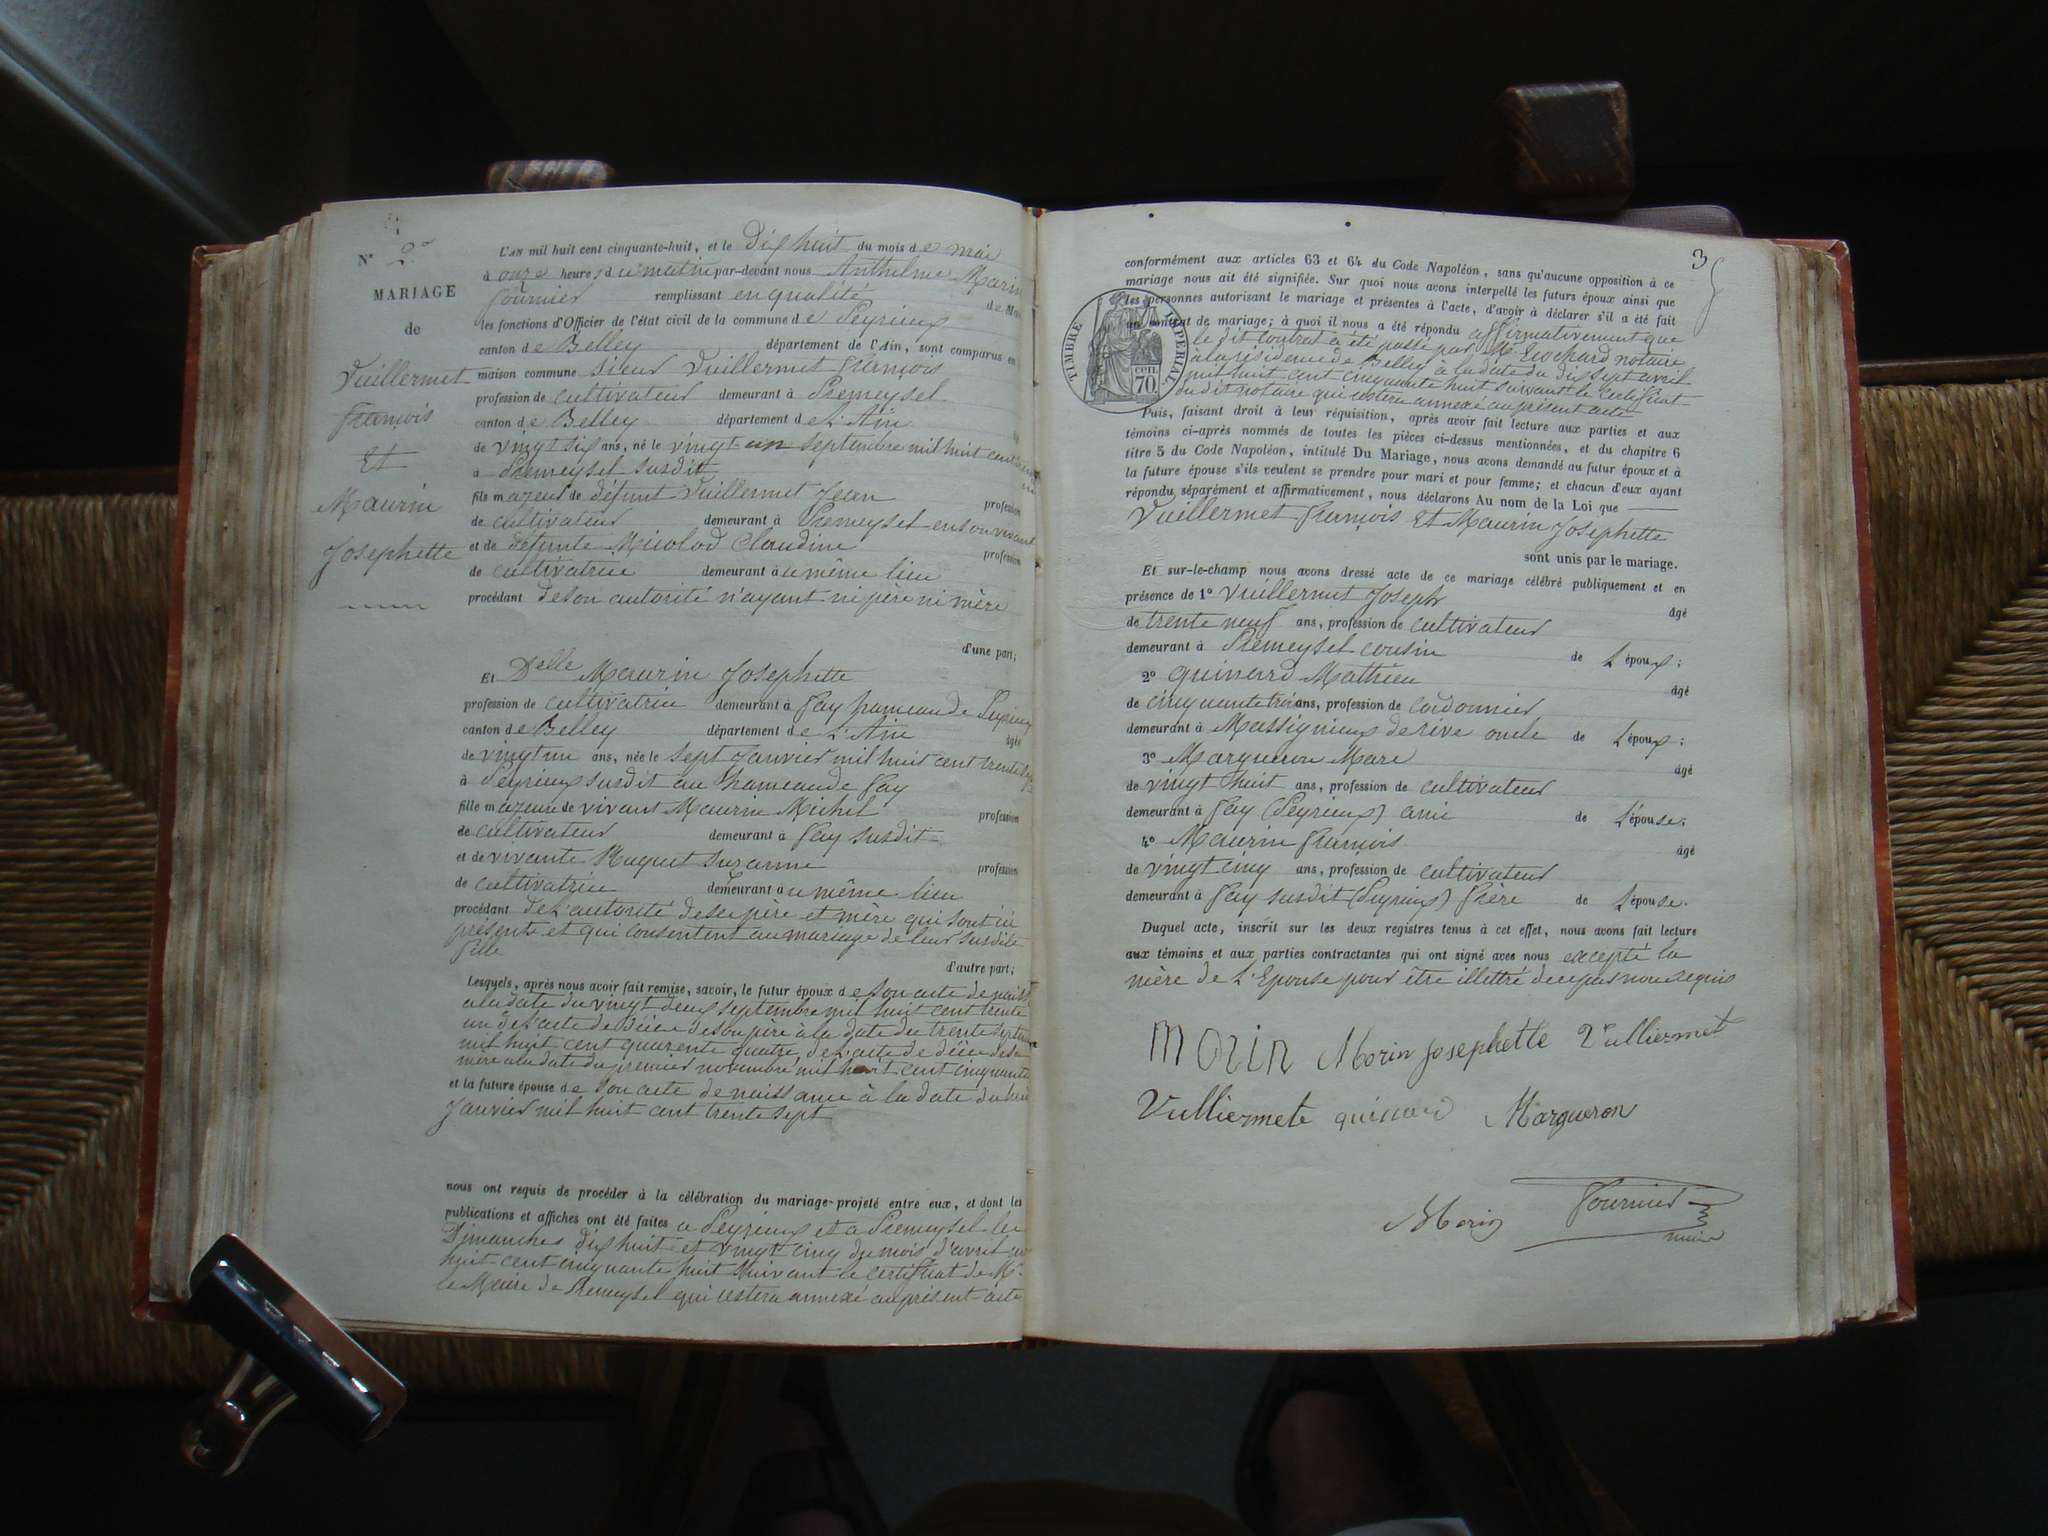 N° 2e
MARIAGE
de
Vuillermet
François
Et
Maurin
Josephette
L'AN mil huit cent cinquante-huit, et le dix huit du mois de mai
à onze heures du matin par-devant nous Anthelme Marin
fournier remplissant en qualité de Mai
les fonctions d'Officier de l'état civil de la commune de Peyrieux
canton de Belley département de l'Ain, sont comparus en
maison commune sieur Vuillermet François
profession de cultivateur demeurant à Premeysel
canton de Belley département de L'Ain
de vingt six ans, né le vingt un septembre mil huit cent
à Premeysel susdit
fils majeur de défunt Vuillermet Jean profession
de cultivateur demeurant à Premeysel en son vivant
et de défunte Micolod Claudine profession
de cultivatrice demeurant au même lieu
procédant de son autorité n'ayant ne père ni mère
d'une part;
Et Delle Maurin Josephette
profession de cultivatrice demeurant à Fay hameau de Peyrieux
canton de Belley département de L'Ain âgée
de vingt un ans, née le sept Janvier mil huit cent trente sept
à Peyrieux susdit au hameau de Fay
fille majeure de vivant Maurin Michel profession
de cultivateur demeurant à Fay susdit
et de vivante Huguet Suzanne profession
de cultivatrice demeurant au même lieu
procédant de L'autorité de ses père et mère qui sont ici
présents et qui consentent au mariage de leur susdite
fille
d'autre part;
Lesquels, après nous avoir fait remise, savoir, le futur époux de son acte de naiss
a la date du vingt deux septembre mil huit cent trente
un de l'acte de décès de son père à la date du trente septembre
mil huit cent quarente quatre, de L'acte de décès de sa
mère a la date du premier novembre mil huit cent cinquante
et la future épouse de son acte de naissance à la date du huit
Janvier mil huit cent trente sept
nous ont requis de procéder à la célébration du mariage projeté entre eux, et dont les
publications et affiches ont été faites a Peyrieux et a Premeysel les
Dimanches dix huit et vingt cinq du mois d'avril mil
huit cent cinquante huit suivant le certificat de Mr
le Maire de Premeysel qui restera annexé au présent acte
3
conformément aux articles 63 et 64 du Code Napoléon, sans qu'aucune opposition à ce
mariage nous ait été signifiée. Sur quoi nous avons interpellé les futurs époux ainsi que
les personnes autorisant le mariage et présentes à l'acte, d'avoir à déclarer s'il a été fait
un contrat de mariage; à quoi il nous a été répondu affirmativement que
le dit contrat a été passé par Me notaire
à la résidence de Belley a la date du dix sept avril
mil huit cent cinquante huit suivant le certificat
du dit notaire qui restera annexé au présent acte
TIMBRE IMPÉRIAL
CENT. 70
Puis, faisant droit à leur réquisition, après avoir fait lecture aux parties et aux
témoins ci-après nommés de toutes les pièces ci-dessus mentionnées, et du chapitre 6
titre 5 du Code Napoléon, intitulé Du Mariage, nous avons demandé au futur époux et à
la future épouse s'ils veulent se prendre pour mari et pour femme; et chacun d'eux ayant
répondu séparément et affirmativement, nous déclarons Au nom de la Loi que
Vuillermet François Et Maurin Josephette
sont unis par le mariage.
Et sur-le-champ nous avons dressé acte de ce mariage célébré publiquement et en
présence de 1° Vuillermet Joseph âgé
de trente neuf ans, profession de cultivateur
demeurant à Premeysel cousin de L'époux;
2° Guinard Mathieu âgé
de cinquante trois ans, profession de cordonnier
demeurant à Massignieux de rive oncle de L'époux;
3° Margueron Marc âgé
de vingt huit ans, profession de cultivateur
demeurant à Fay (Peyrieux) ami de L'épouse;
4° Maurin François âgé
de vingt cinq ans, profession de cultivateur
demeurant à Fay susdit (Peyrieux) frère de L'épouse.
Duquel acte, inscrit sur les deux registres tenus à cet effet, nous avons fait lecture
aux témoins et aux parties contractantes qui ont signé avec nous excepté la
mère de L'Epouse pour être illettré de ce par nous requis
morin Morin Josephette Vulliermet
Vulliermete guinard Margueron
Morin Fournier
maire